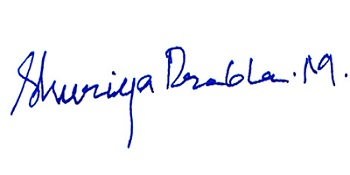 Shuriya Prabha. M.